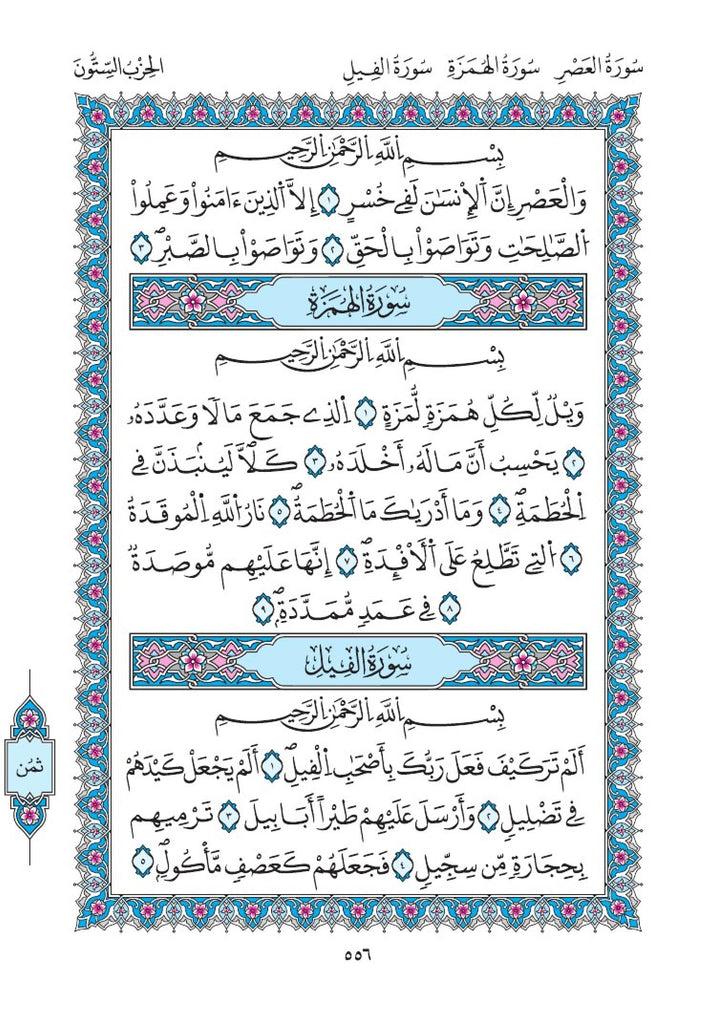 سُورَةُ الْعَصْرِ سُورَةُ الْهُمَزَةِ سُورَةُ الْفِيلِ الْحِزْبُ السِّتُّونَ
بِسْمِ اِ۬للَّهِ اِ۬لرَّحْمَٰنِ اِ۬لرَّحِيمِ
وَالْعَصْرِ إِنَّ اَ۬لْإِنسَٰنَ لَفِے خُسْرٍ ١ إِلَّا اَ۬لذِينَ ءَامَنُواْ وَعَمِلُواْ
اُ۬لصَّٰلِحَٰتِ وَتَوَاصَوْاْ بِالْحَقِّ ٢ وَتَوَاصَوْاْ بِالصَّبْرِۖ ٣
سُورَةُ الْهُمَزَةِ
بِسْمِ اِ۬للَّهِ اِ۬لرَّحْمَٰنِ اِ۬لرَّحِيمِ
وَيْلٌ لِّكُلِّ هُمَزَةٍ لُّمَزَةٍ ١ اِ۬لذِے جَمَعَ مَالًا وَعَدَّدَهُۥ
٢ يَحْسِبُ أَنَّ مَالَهُۥ أَخْلَدَهُۥ ٣ كَلَّاۖ لَيُنۢبَذَنَّ فِے
اِ۬لْحُطَمَةِۖ ٤ وَمَا أَدْرَيٰكَ مَا اَ۬لْحُطَمَةُۖ ٥ نَارُ اُ۬للَّهِ اِ۬لْمُوقَدَةُ
٦ اُ۬لتِے تَطَّلِعُ عَلَى اَ۬لْأَفْـِٕدَةِۖ ٧ إِنَّهَا عَلَيْهِم مُّوصَدَةٌ
٨ فِے عَمَدٍ مُّمَدَّدَةِۢۖ ٩
سُورَةُ الْفِيلِ
بِسْمِ اِ۬للَّهِ اِ۬لرَّحْمَٰنِ اِ۬لرَّحِيمِ
أَلَمْ تَرَ كَيْفَ فَعَلَ رَبُّكَ بِأَصْحَٰبِ اِ۬لْفِيلِۖ ١ أَلَمْ يَجْعَلْ كَيْدَهُمْ
ثمُن
فِے تَضْلِيلٍ ٢ وَأَرْسَلَ عَلَيْهِمْ طَيْرًا أَبَابِيلَ ٣ تَرْمِيهِم
بِحِجَارَةٍ مِّن سِجِّيلٍ ٤ فَجَعَلَهُمْ كَعَصْفٍ مَّأْكُولٍۖ ٥
٥٥٦